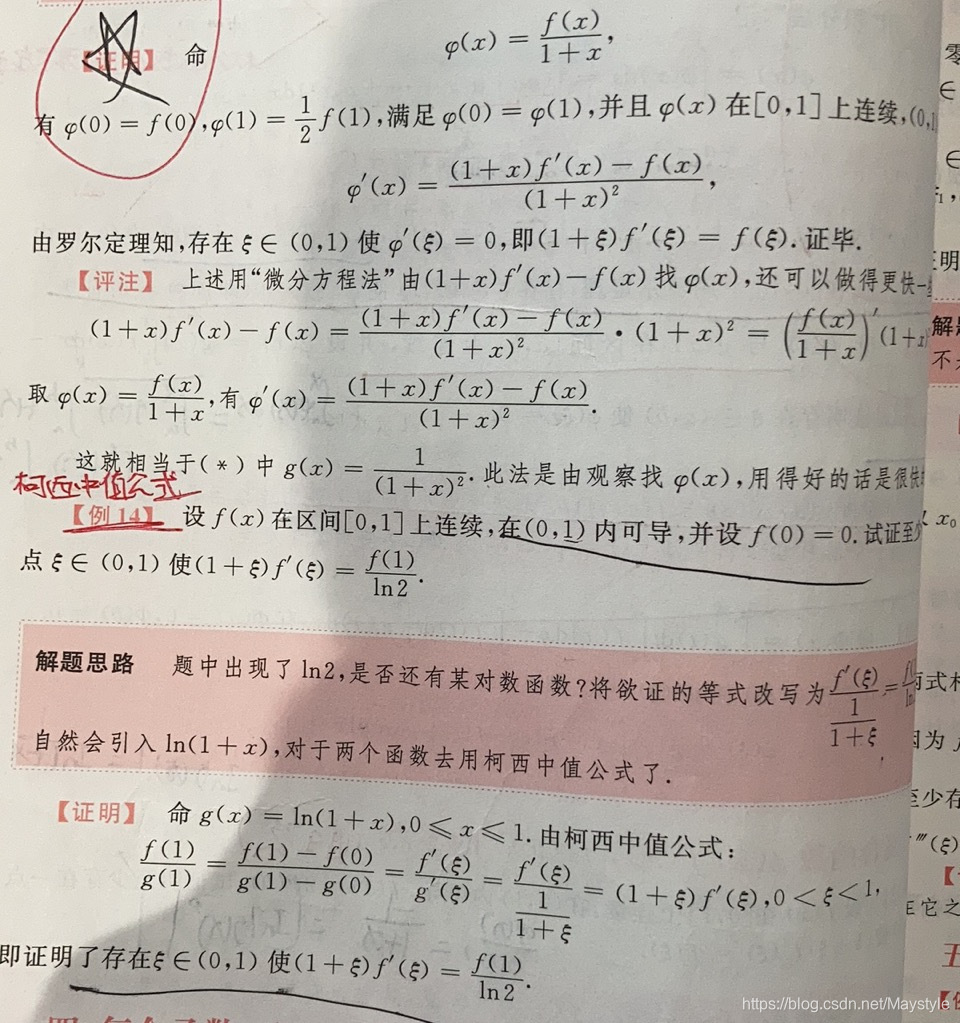 【证明】 命 φ(x) = f(x)/(1+x),
有 φ(0) = f(0), φ(1) = 1/2 f(1), 满足 φ(0) = φ(1), 并且 φ(x) 在[0,1]上连续, (0,
φ′(x) = ((1+x)f′(x) − f(x))/(1+x)²,
由罗尔定理知, 存在 ξ ∈ (0,1) 使 φ′(ξ) = 0, 即(1+ξ)f′(ξ) = f(ξ). 证毕.
【评注】 上述用“微分方程法”由(1+x)f′(x)−f(x)找 φ(x), 还可以做得更快一
(1+x)f′(x) − f(x) = ((1+x)f′(x) − f(x))/(1+x)² • (1+x)² = (f(x)/(1+x))′ (1+x
取 φ(x) = f(x)/(1+x), 有 φ′(x) = ((1+x)f′(x) − f(x))/(1+x)².
这就相当于(*)中 g(x) = 1/(1+x)². 此法是由观察找 φ(x), 用得好的话是很快
柯西中值公式
【例 14】 设 f(x) 在区间[0,1]上连续, 在(0,1)内可导, 并设 f(0) = 0. 试证至
点 ξ ∈ (0,1) 使(1+ξ)f′(ξ) = f(1)/ln2.
解题思路 题中出现了 ln2, 是否还有某对数函数? 将欲证的等式改写为 f′(ξ)/(1/(1+ξ)) =
自然会引入 ln(1+x), 对于两个函数去用柯西中值公式了.
【证明】 命 g(x) = ln(1+x), 0 ⩽ x ⩽ 1. 由柯西中值公式:
f(1)/g(1) = (f(1)−f(0))/(g(1)−g(0)) = f′(ξ)/g′(ξ) = f′(ξ)/(1/(1+ξ)) = (1+ξ)f′(ξ), 0 < ξ < 1,
即证明了存在ξ∈(0,1) 使(1+ξ)f′(ξ) = f(1)/ln2.
零
∈
∈
明
解题
不
x₀
两式
因为
至少存
‴(ξ)
在它之
https://blog.csdn.net/Maystyle